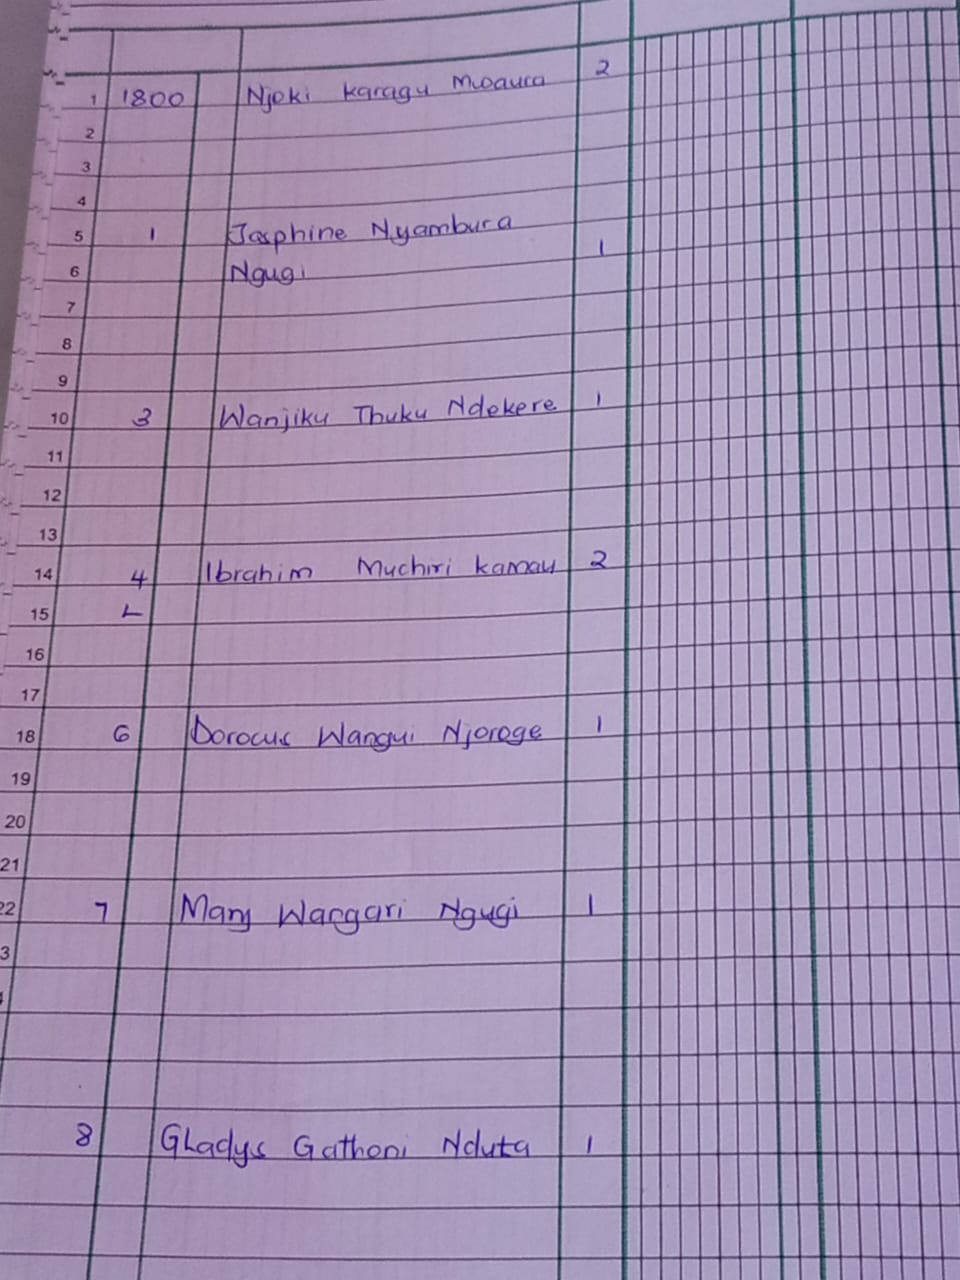 1 1800 Njoki karagu Mwaura 2
2
3
4
5 1 Josphine Nyambura 1
6 Ngugi
7
8
9
10 3 Wanjiku Thuku Ndekere 1
11
12
13
14 4 Ibrahim Muchiri kamau 2
15
16
17
18 6 Dorocus Wangui Njoroge 1
19
20
21
22 7 Mary Wangari Ngugi 1
3
8 Gladys Gathoni Nduta 1